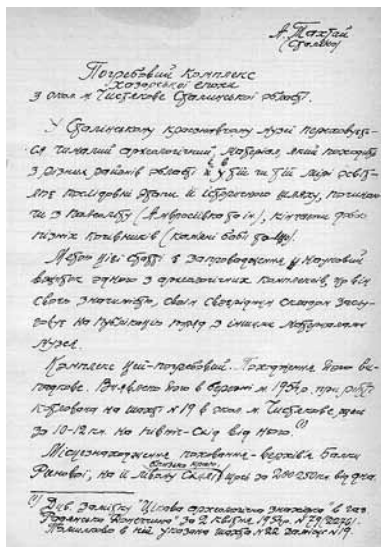 А. Тахтай
(Сталіно)
Погребовий комплекс
хозарської епохи
з окол. м. Чистякове Сталінської області.
У Сталінському краєзнавчому музеї переховуєть-
ся чималий археологічний матеріал, який походить
з різних районів області й у тій чи тій мірі освіт-
лює послідовні етапи її історичного шляху, почина-
ючи з палеоліту (Амвросіївка та ін.), кінчаючи
пізніх кочівників (кам'яні баби та ).
Метою цієї статті є запровадження у науковий
вжиток одного з археологічних комплексів, що він
своєю значимістю, своїм своєрідним складом заслу-
говує на публікацію поряд з іншими матеріалами
музея.
Комплекс цей - погребовий. Походження його ви-
падкове. Виявлено його в березні м. 1954 р. при
котлована на шахті №19 в окол. м. Чистякове,
за 10-12 км. на північ-схід від нього. (1)
Місцезнаходження поховання - верхів'я балки
на її лівому схилі, близько краю, за 200-250 км від дна.
(1) Див. замітку "Цікава археологічна знахідка" в газ.
"Радянська Донеччина" за 2 квітня 1954 р. №79
Помилково в ній указана шахта №22 замість №19.